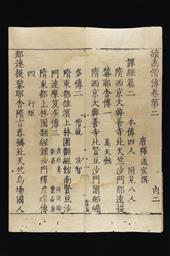 續高僧傳卷第二 內二
唐釋道宣撰
譯經篇二 本傳四人 附見八人
隋西京大興善寺北天竺沙門那連
耶舍傳一 萬天懿
隋西京大興善寺北賢豆沙門闍那崛
多傳二
僧就 法智
隋東都雒濱上林園翻經館南賢豆沙
門達摩笈多傳三
隋東都上林園翻經館沙門釋彥琮傳
四 行矩
那連提黎耶舍隋言尊稱北天竺烏場國人